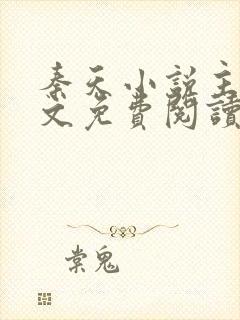 秦天小说主
文免費閱讀
棠鬼